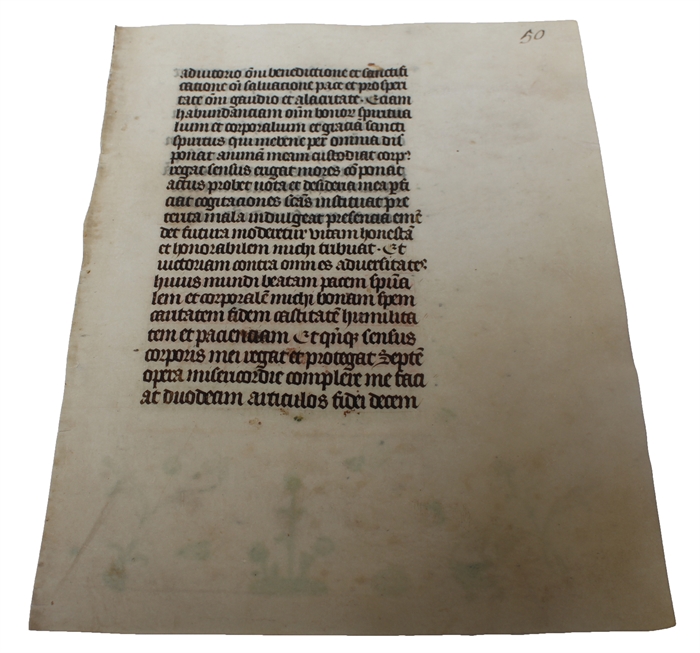 50
adiutorio om̄i benedictione et sanctifi
catione om̄i saluacione pace et prosperi
tate om̄i gaudio et alacritate. Etiam
habundanciam om̄m bonor spiritua
lium et corporalium et graciā sancti
spiritus qui me bene per omnia dis
ponat animā meam custodiat corpꝰ
regat sensus erigat mores cōponat
actus probet uota et desideria mea ꝑfi
ciat cogitaciones sctās instituat pre
terita mala indulgeat presencia emē
det futura moderetur uitam honestā
et honorabilem michi tribuat. Et
uictoriam contra omnes aduersitateˢ
huius mundi beatam pacem spūa
lem et corporalē michi bonam spem
caritatem fidem castitatē humilita
tem et pacienciam Et qn̄qꝫ sensus
corporis mei regat et protegat Septē
opera misericordie complere me faci
at duodecim articulos fidei decem